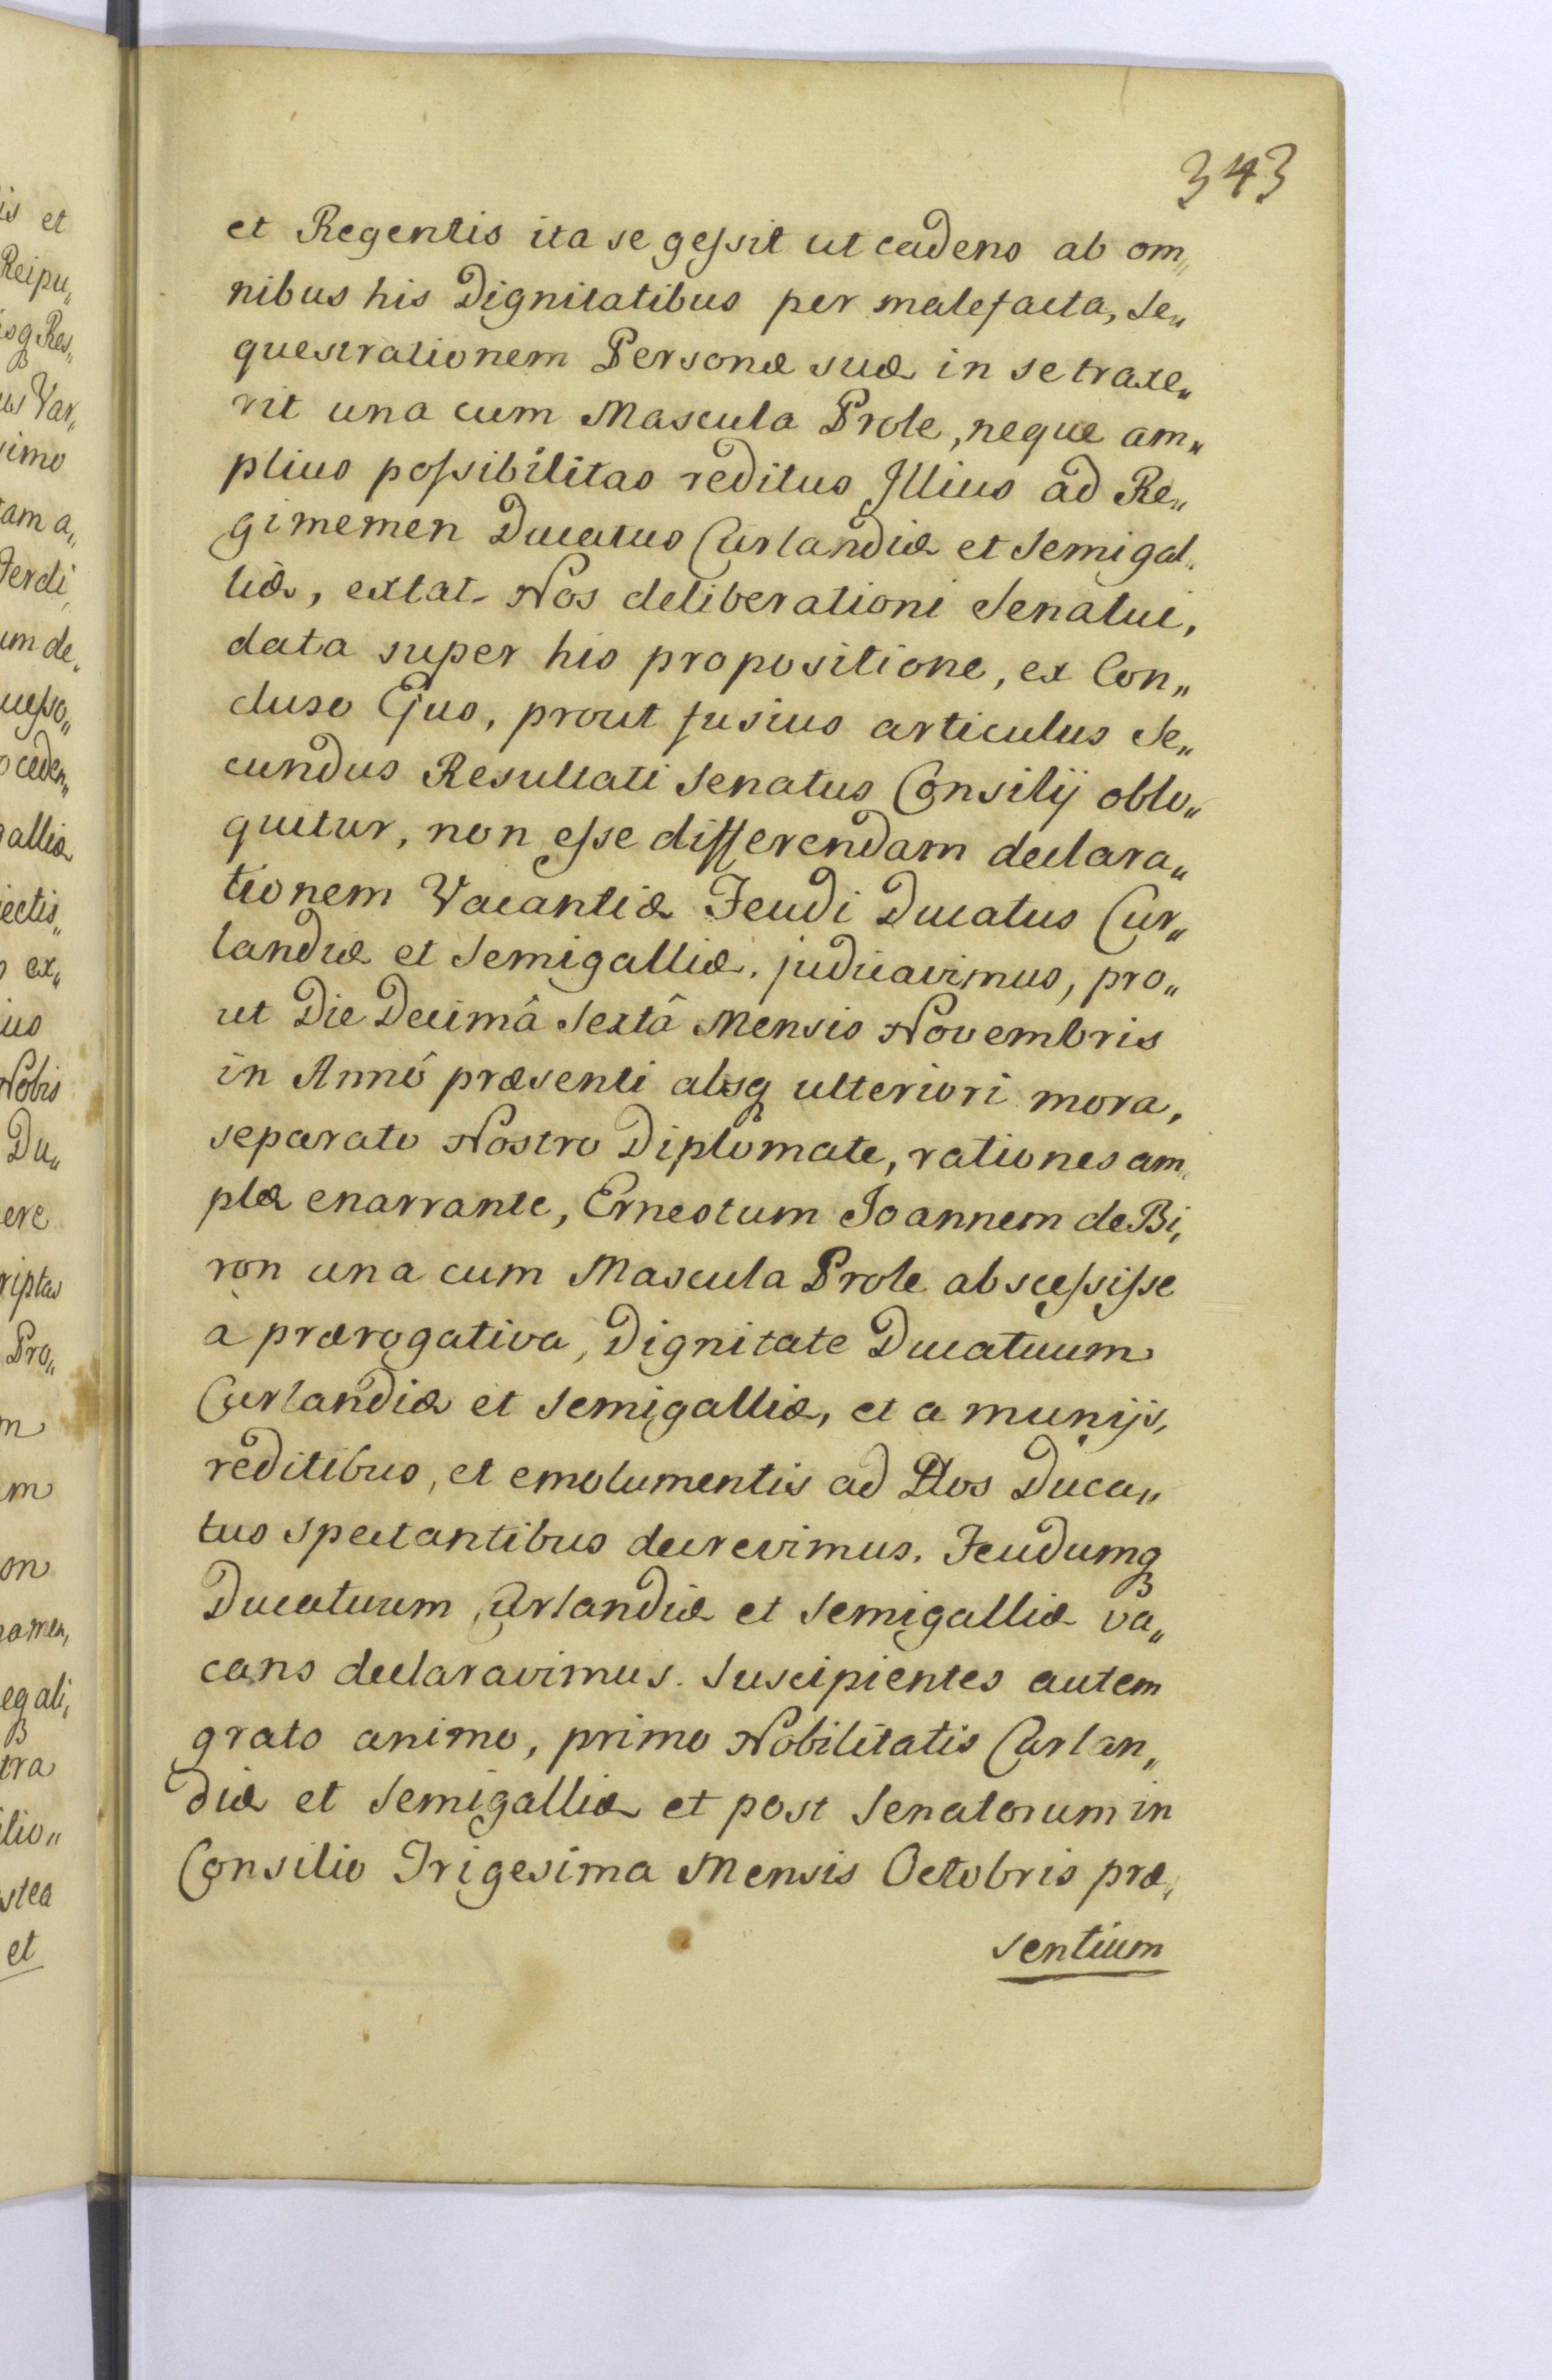 343
et Regentis ita se geſsit ut cadens ab om„
nibus his Dignitatibus per malefacta, Se„
questrationem Personæ suæ in se traxe„
rit una cum Mascula Prole, neque am„
plius poſsibilitas reditus Illius ad Re„
gimemen Ducatus Curlandiæ et Semigal„
liæ, extat. Nos deliberationi Senatui,
data super his propositione, ex Con„
cluso Ejus, prout fusius articulus Se„
cundus Resultati Senatus Consilij oblo„
quitur, non eſse differendam declara„
tionem Vacantiæ Feudi Ducatus Cur„
landiæ et Semigalliæ. judicavimus, pro„
ut Die Decimâ Sextâ Mensis Novembris
in Annô præsenti absq ulteriori mora,
separato Nostro Diplomate, rationes am„
plæ enarrante, Ernestum Joannem de Bi„
ron una cum Mascula Prole absceſsiſse
à prærogativa, Dignitate Ducatuum
Curlandiæ et Semigalliæ, et a munijs,
reditibus, et emolumentis ad Hos Duca„
tus spectantibus decrevimus. Feudumq
Ducatuum Curlandiæ et Semigalliæ va„
cans declaravimus. Suscipientes autem
grato animo, primo Nobilitatis Curlan„
diæ et Semigalliæ et post Senatorum in
Consilio Trigesima Mensis Octobris præ„
sentium
is et
Reipu„
isq Res„
us Var„
simo
tam a„
Ferdi„
um de„
uceſso„
ceden„
galliæ
iectis„
ex„
ius
Nobis
Du„
ere
riptas
Pro„
m
m
on
namen„
egali„
tra
ilio„
stea
et